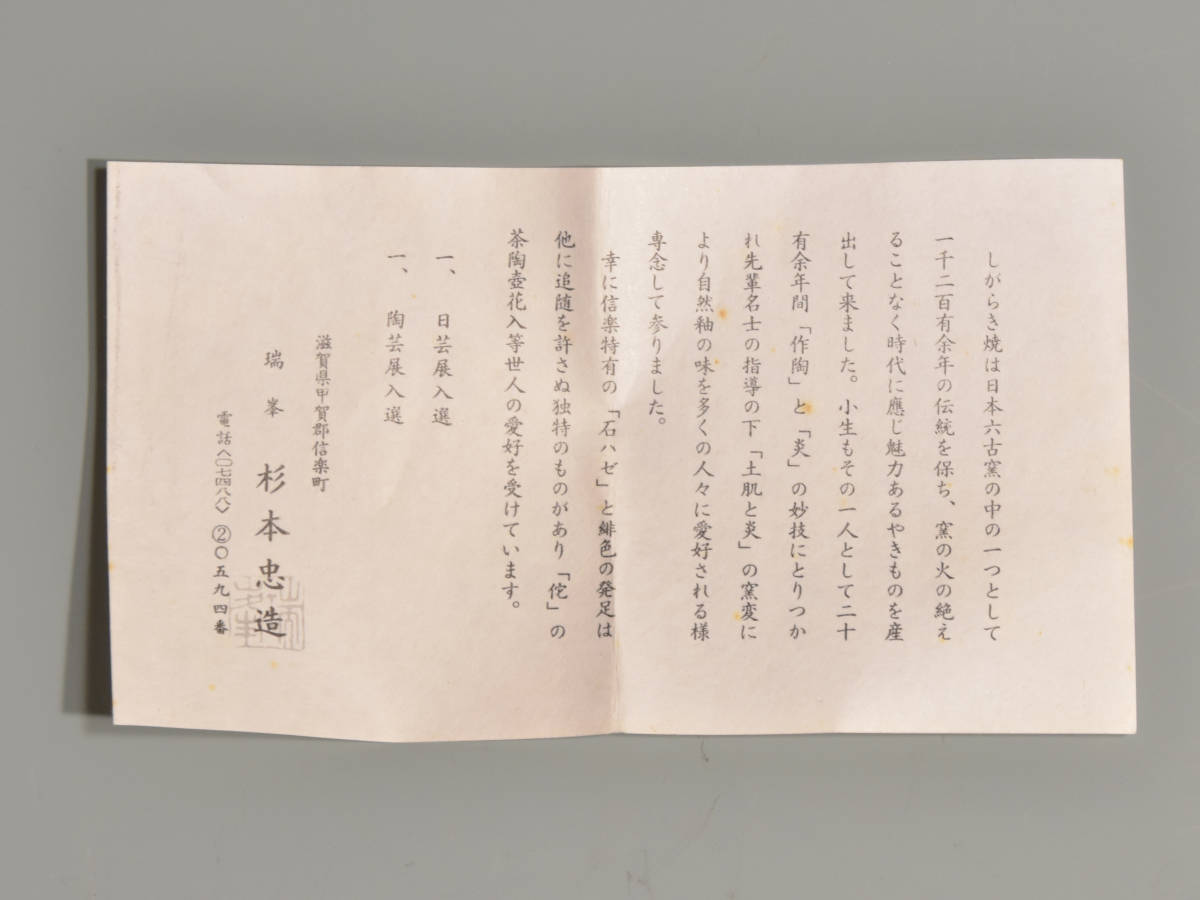 しがらき焼は日本六古窯の中の一つとして
一千二百有余年の伝統を保ち、窯の火の絶え
ることなく時代に應じ魅力あるやきものを産
出して来ました。小生もその一人として二十
有余年間「作陶」と「炎」の妙技にとりつか
れ先輩名士の指導の下「土肌と炎」の窯変に
より自然釉の味を多くの人々に愛好される様
専念して参りました。
幸に信楽特有の「石ハゼ」と緋色の発足は
他に追随を許さぬ独特のものがあり「侘」の
茶陶壺花入等世人の愛好を受けています。
一、日芸展入選
一、陶芸展入選
滋賀県甲賀郡信楽町
瑞峯 杉本忠造
電話〈〇七四八八〉②〇五九四番